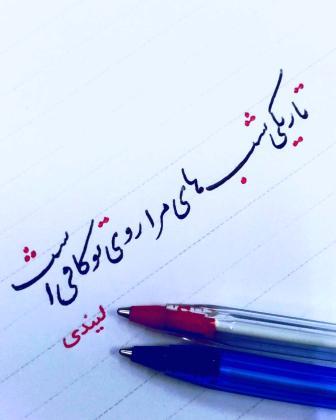 تاریکی شب های مرا روی تو کافی است